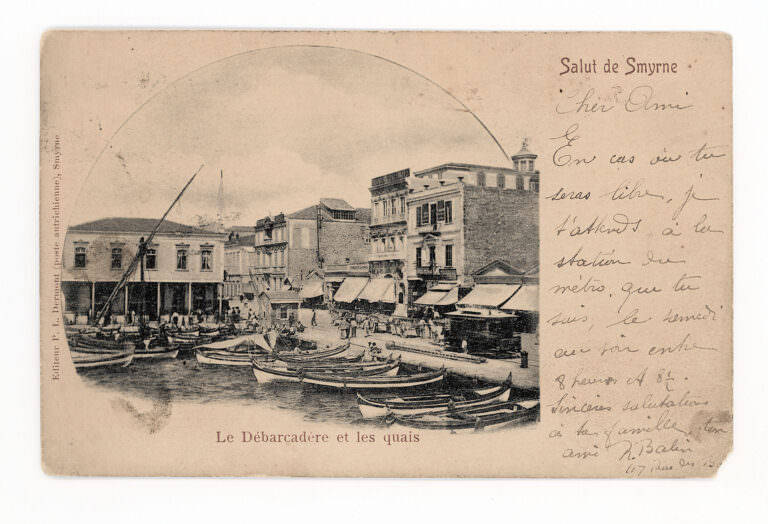 Salut de Smyrne
Cher Ami
En cas où tu
seras libre, je
t'attends à la
station du
métro, que tu
sais, le samedi
au soir entre
8 heures et 8½
Sincères salutations
à ta famille, ton
ami N. Balin
117 Rue des
Le Débarcadère et les quais
Editeur P. L. Dermond (poste autrichienne), Smyrne